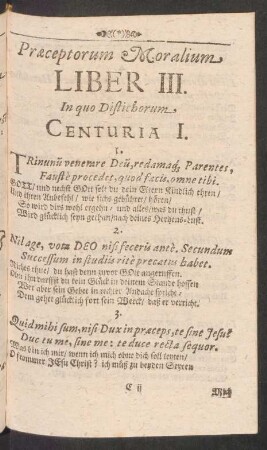 Præceptorum Moralium
LIBER III.
In quo Distichorum
CENTURIA I.
1.
TRinunū venerare Deū, redamaq; Parentes,
Faustè procedet, quod facis, omne tibi.
GOTT/ und nechst GOtt solt du dein Eltern Kindlich ehren/
Und ihren
So wird dirs wohl ergehn/ und alles/ was du thust/
Wird glücklich seyn gethan/nach deines Hertzens-Lust.
2.
Nil age, vota DEO nisi feceris antè. Secundum
Successum in studiis ritè precatus habet.
Nichts thue/ du hast denn zuvor GOtt angeruffen.
du Glück in deinem Stande hoffen
Wer aber sein Gebet in rechter Andacht spricht/
Dem gehet glücklich fort sein Werck/ daß er verricht.
3.
Quid mihi sum, nisi Dux in præceps, te sine Jesu?
Duc tu me, sine me: te duce recta sequor.
Was bin ich mir/ wenn ich mich ohne dich soll leyten/
O frommer JEsu Christ? ich müß zu beyden Seyten
C ij